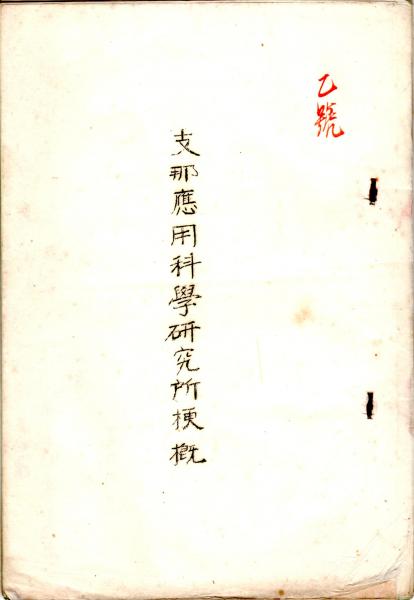 乙號
支那應用科學研究所梗概